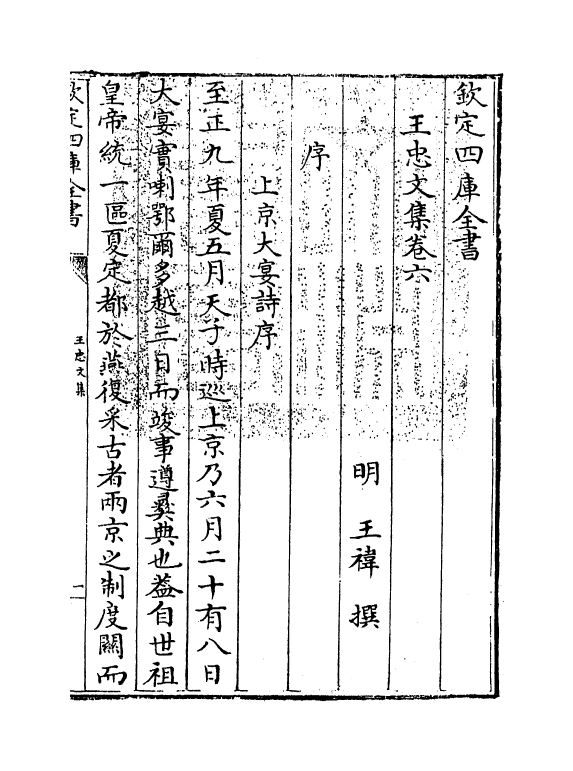 欽定四庫全書
王忠文集卷六
明 王禕 撰
序
上京大宴詩序
至正九年夏五月天子時巡上京乃六月二十有八日
大宴實喇鄂爾多越三日而竣事遵彝典也葢自世祖
皇帝統一區夏定都於燕復采古者兩京之制度關而
欽定四庫全書
王忠文集
一